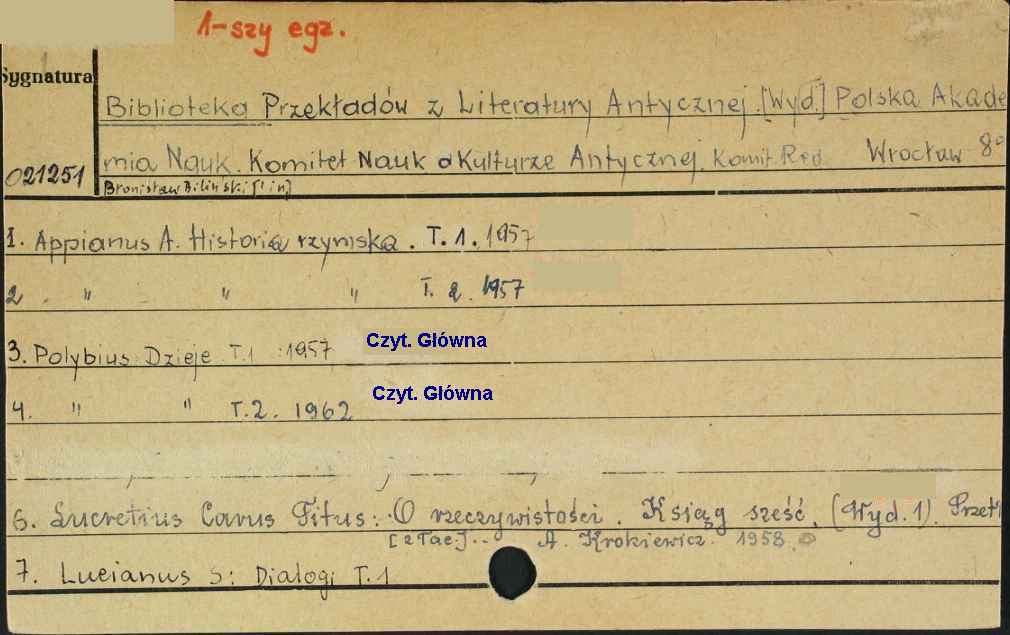 1-szy egz.
Sygnatura
Biblioteka Przekładów z Literatury Antycznej. [Wyd.] Polska Akade
mia Nauk. Komitet Nauk o Kulturze Antycznej. Komit. Red. Wrocław 8°
021251
Bronisław Biliński [i in]
1. Appianus A. Historia rzymska. T. 1. 1957
2 . " " " T. 2. 1957
3. Polybius Dzieje T.1 1957 Czyt. Główna
4. " " T.2. 1962 Czyt. Główna
6. Lucretius Carus Titus: O rzeczywistości. Ksiąg sześć. (Wyd. 1).
A. Krokiewicz. 1958.
7. Lucianus S: Dialogi T.1